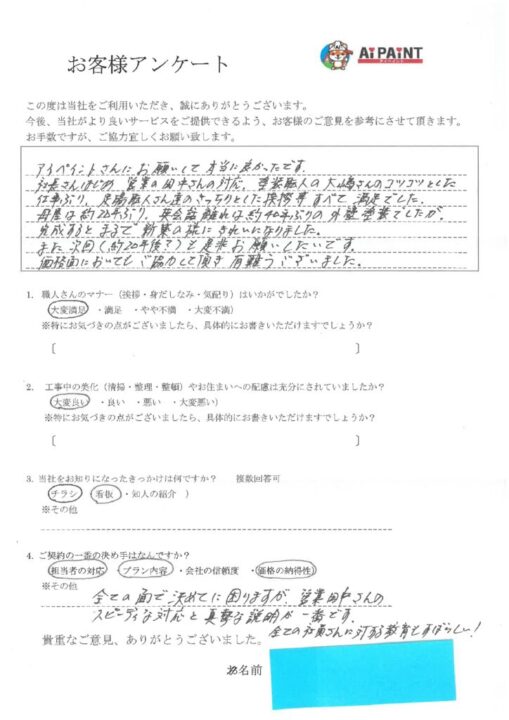 お客様アンケート
Ai PAiNT
この度は当社をご利用いただき、誠にありがとうございます。
今後、当社がより良いサービスをご提供できるよう、お客様のご意見を参考にさせて頂きます。
お手数ですが、ご協力宜しくお願い致します。
アイペイントさんにお願いして本当に良かったです。
社長さんはじめ、営業の田中さんの対応、塗装職人の大嶋さんのコツコツとした
仕事ぶり、足場職人さん達のきっちりとした挨拶等すべて満足でした。
母屋は約22年ぶり、英会話離れは約40年ぶりの外壁塗装でしたが、
完成するとまるで新築の様にきれいになりました。
また次回(約20年後?)も是非お願いしたいです。
価格面においてもご協力して頂き有難うございました。
1. 職人さんのマナー（挨拶・身だしなみ・気配り）はいかがでしたか？
（大変満足 ・満足 ・やや不満 ・大変不満）
※特にお気づきの点がございましたら、具体的にお書きいただけますでしょうか？
〔 〕
2. 工事中の美化（清掃・整理・整頓）やお住まいへの配慮は充分にされていましたか？
（大変良い ・良い ・悪い ・大変悪い）
※特にお気づきの点がございましたら、具体的にお書きいただけますでしょうか？
〔 〕
3. 当社をお知りになったきっかけは何ですか？ 複数回答可
（チラシ ・看板 ・知人の紹介 ）
※その他
4. ご契約の一番の決め手はなんですか？
（担当者の対応 ・プラン内容 ・会社の信頼度 ・価格の納得性）
※その他
全ての面で決めてに困りますが、営業田中さんの
スピーディな対応と真摯な説明が一番です。
全ての社員さんに対する教育もすばらしい!
貴重なご意見、ありがとうございました。
お名前